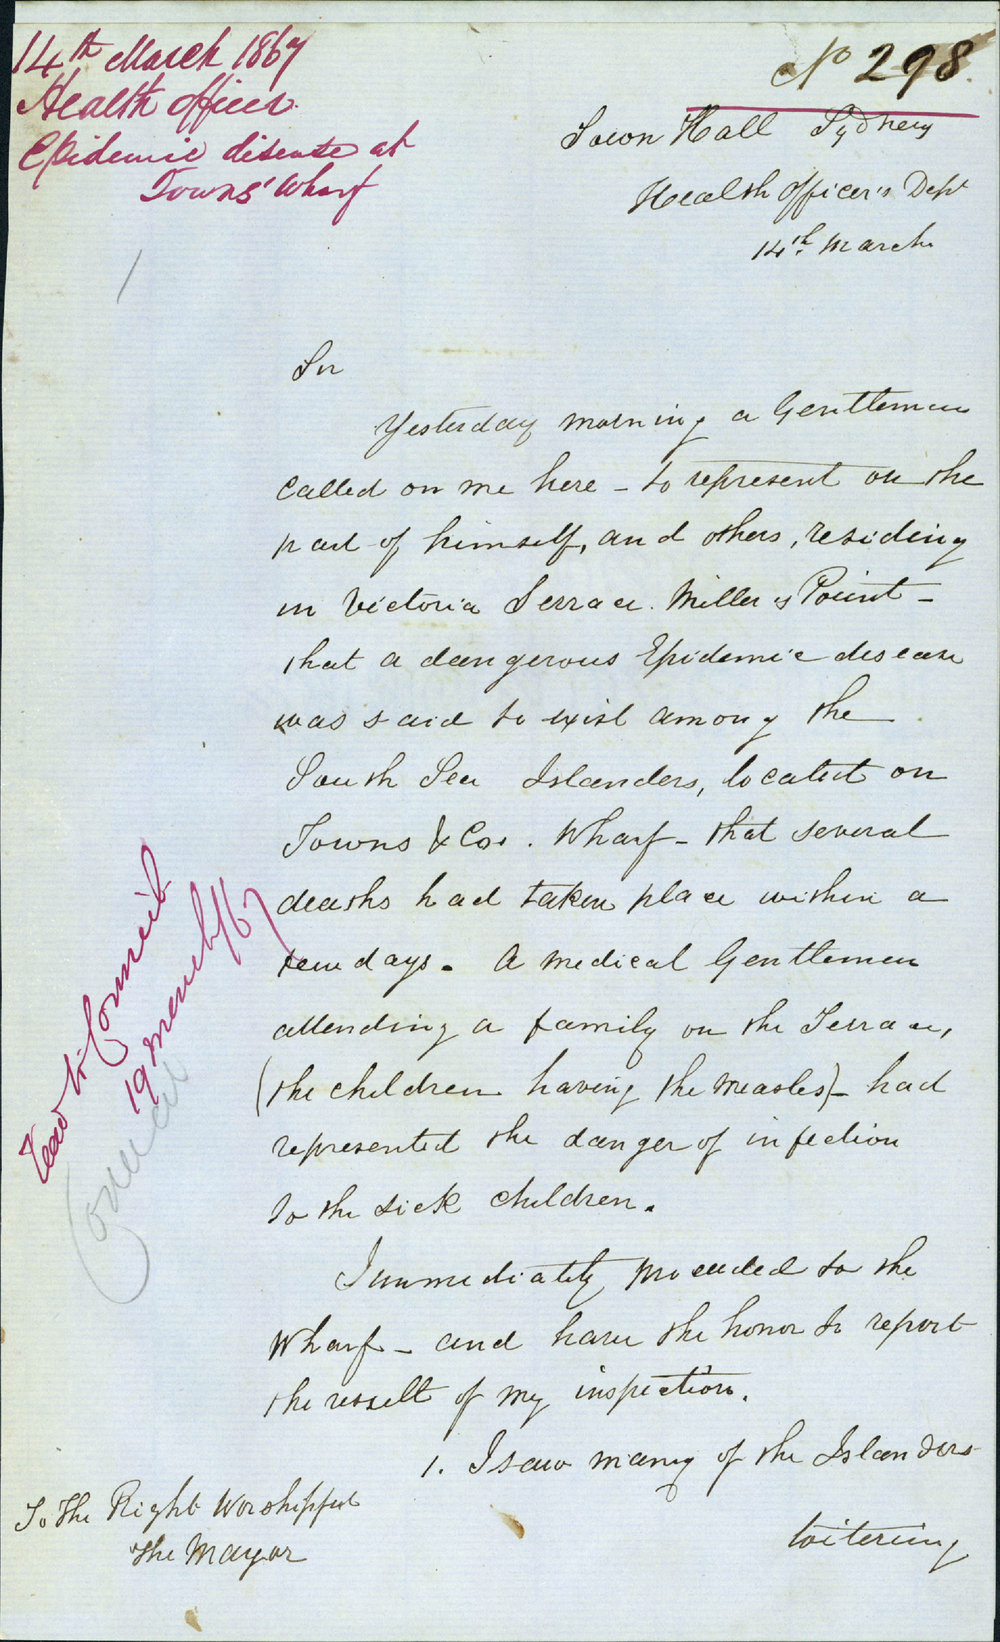 14th March 1867
Health Officer
Epidemic disease at
Towns' Wharf
No 298
Town Hall Sydney
Health Officer's Dept
14th March
Sir
Yesterday morning a Gentleman
called on me here - to represent on the
part of himself, and others, residing
in Victoria Terrace. Miller's Point -
that a dangerous Epidemic disease
was said to exist among the
South Sea Islanders, located on
Towns & Cos. Wharf - that several
deaths had taken place within a
few days. A medical Gentleman
attending a family on the Terrace,
(the children having the measles) - had
represented the danger of infection
to the sick children.
I immediately proceeded to the
Wharf - and have the honor to report
the result of my inspection.
1. I saw many of the Islanders
loitering
To The Right Worshipful
The Mayor
Read to Council
19 March/67